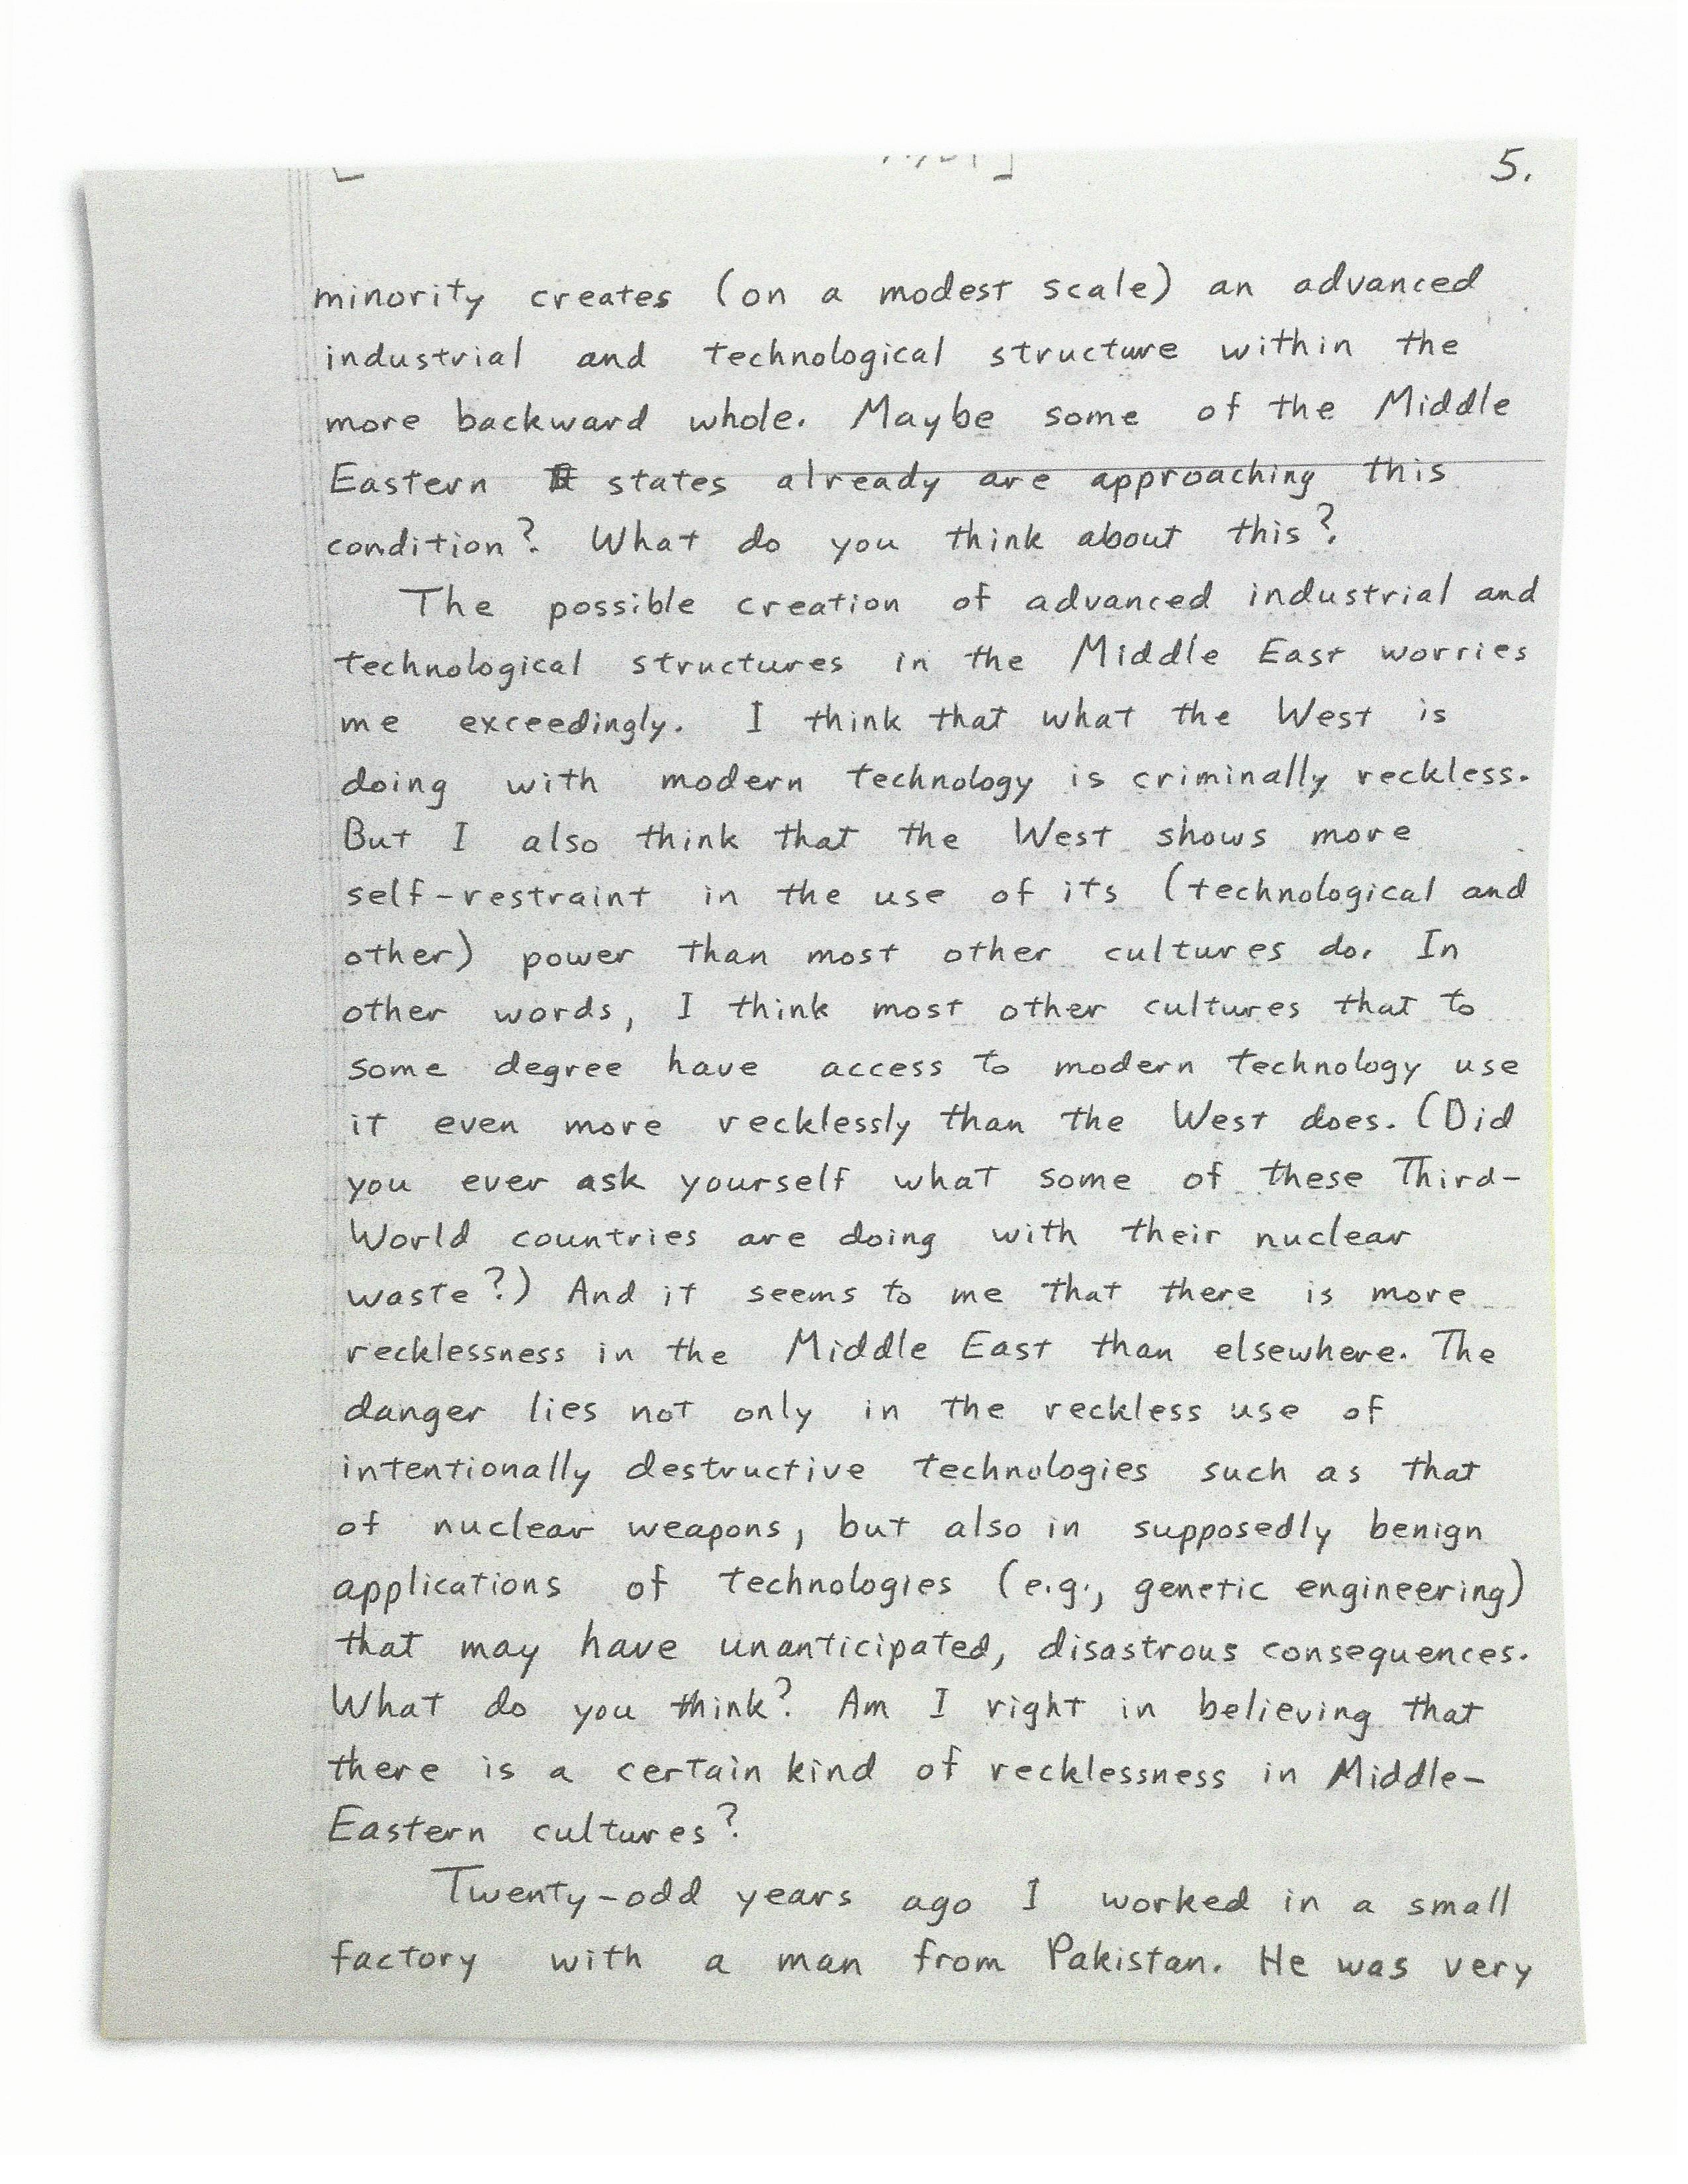 5.
minority creates (on a modest scale) an advanced
industrial and technological structure within the
more backward whole. Maybe some of the Middle
Eastern states already are approaching this
condition? What do you think about this?
The possible creation of advanced industrial and
technological structures in the Middle East worries
me exceedingly. I think that what the West is
doing with modern technology is criminally reckless.
But I also think that the West shows more
self-restraint in the use of its (technological and
other) power than most other cultures do. In
other words, I think most other cultures that to
some degree have access to modern technology use
it even more recklessly than the West does. (Did
you ever ask yourself what some of these Third-
World countries are doing with their nuclear
waste?) And it seems to me that there is more
recklessness in the Middle East than elsewhere. The
danger lies not only in the reckless use of
intentionally destructive technologies such as that
of nuclear weapons, but also in supposedly benign
applications of technologies (e.g., genetic engineering)
that may have unanticipated, disastrous consequences.
What do you think? Am I right in believing that
there is a certain kind of recklessness in Middle-
Eastern cultures?
Twenty-odd years ago I worked in a small
factory with a man from Pakistan. He was very